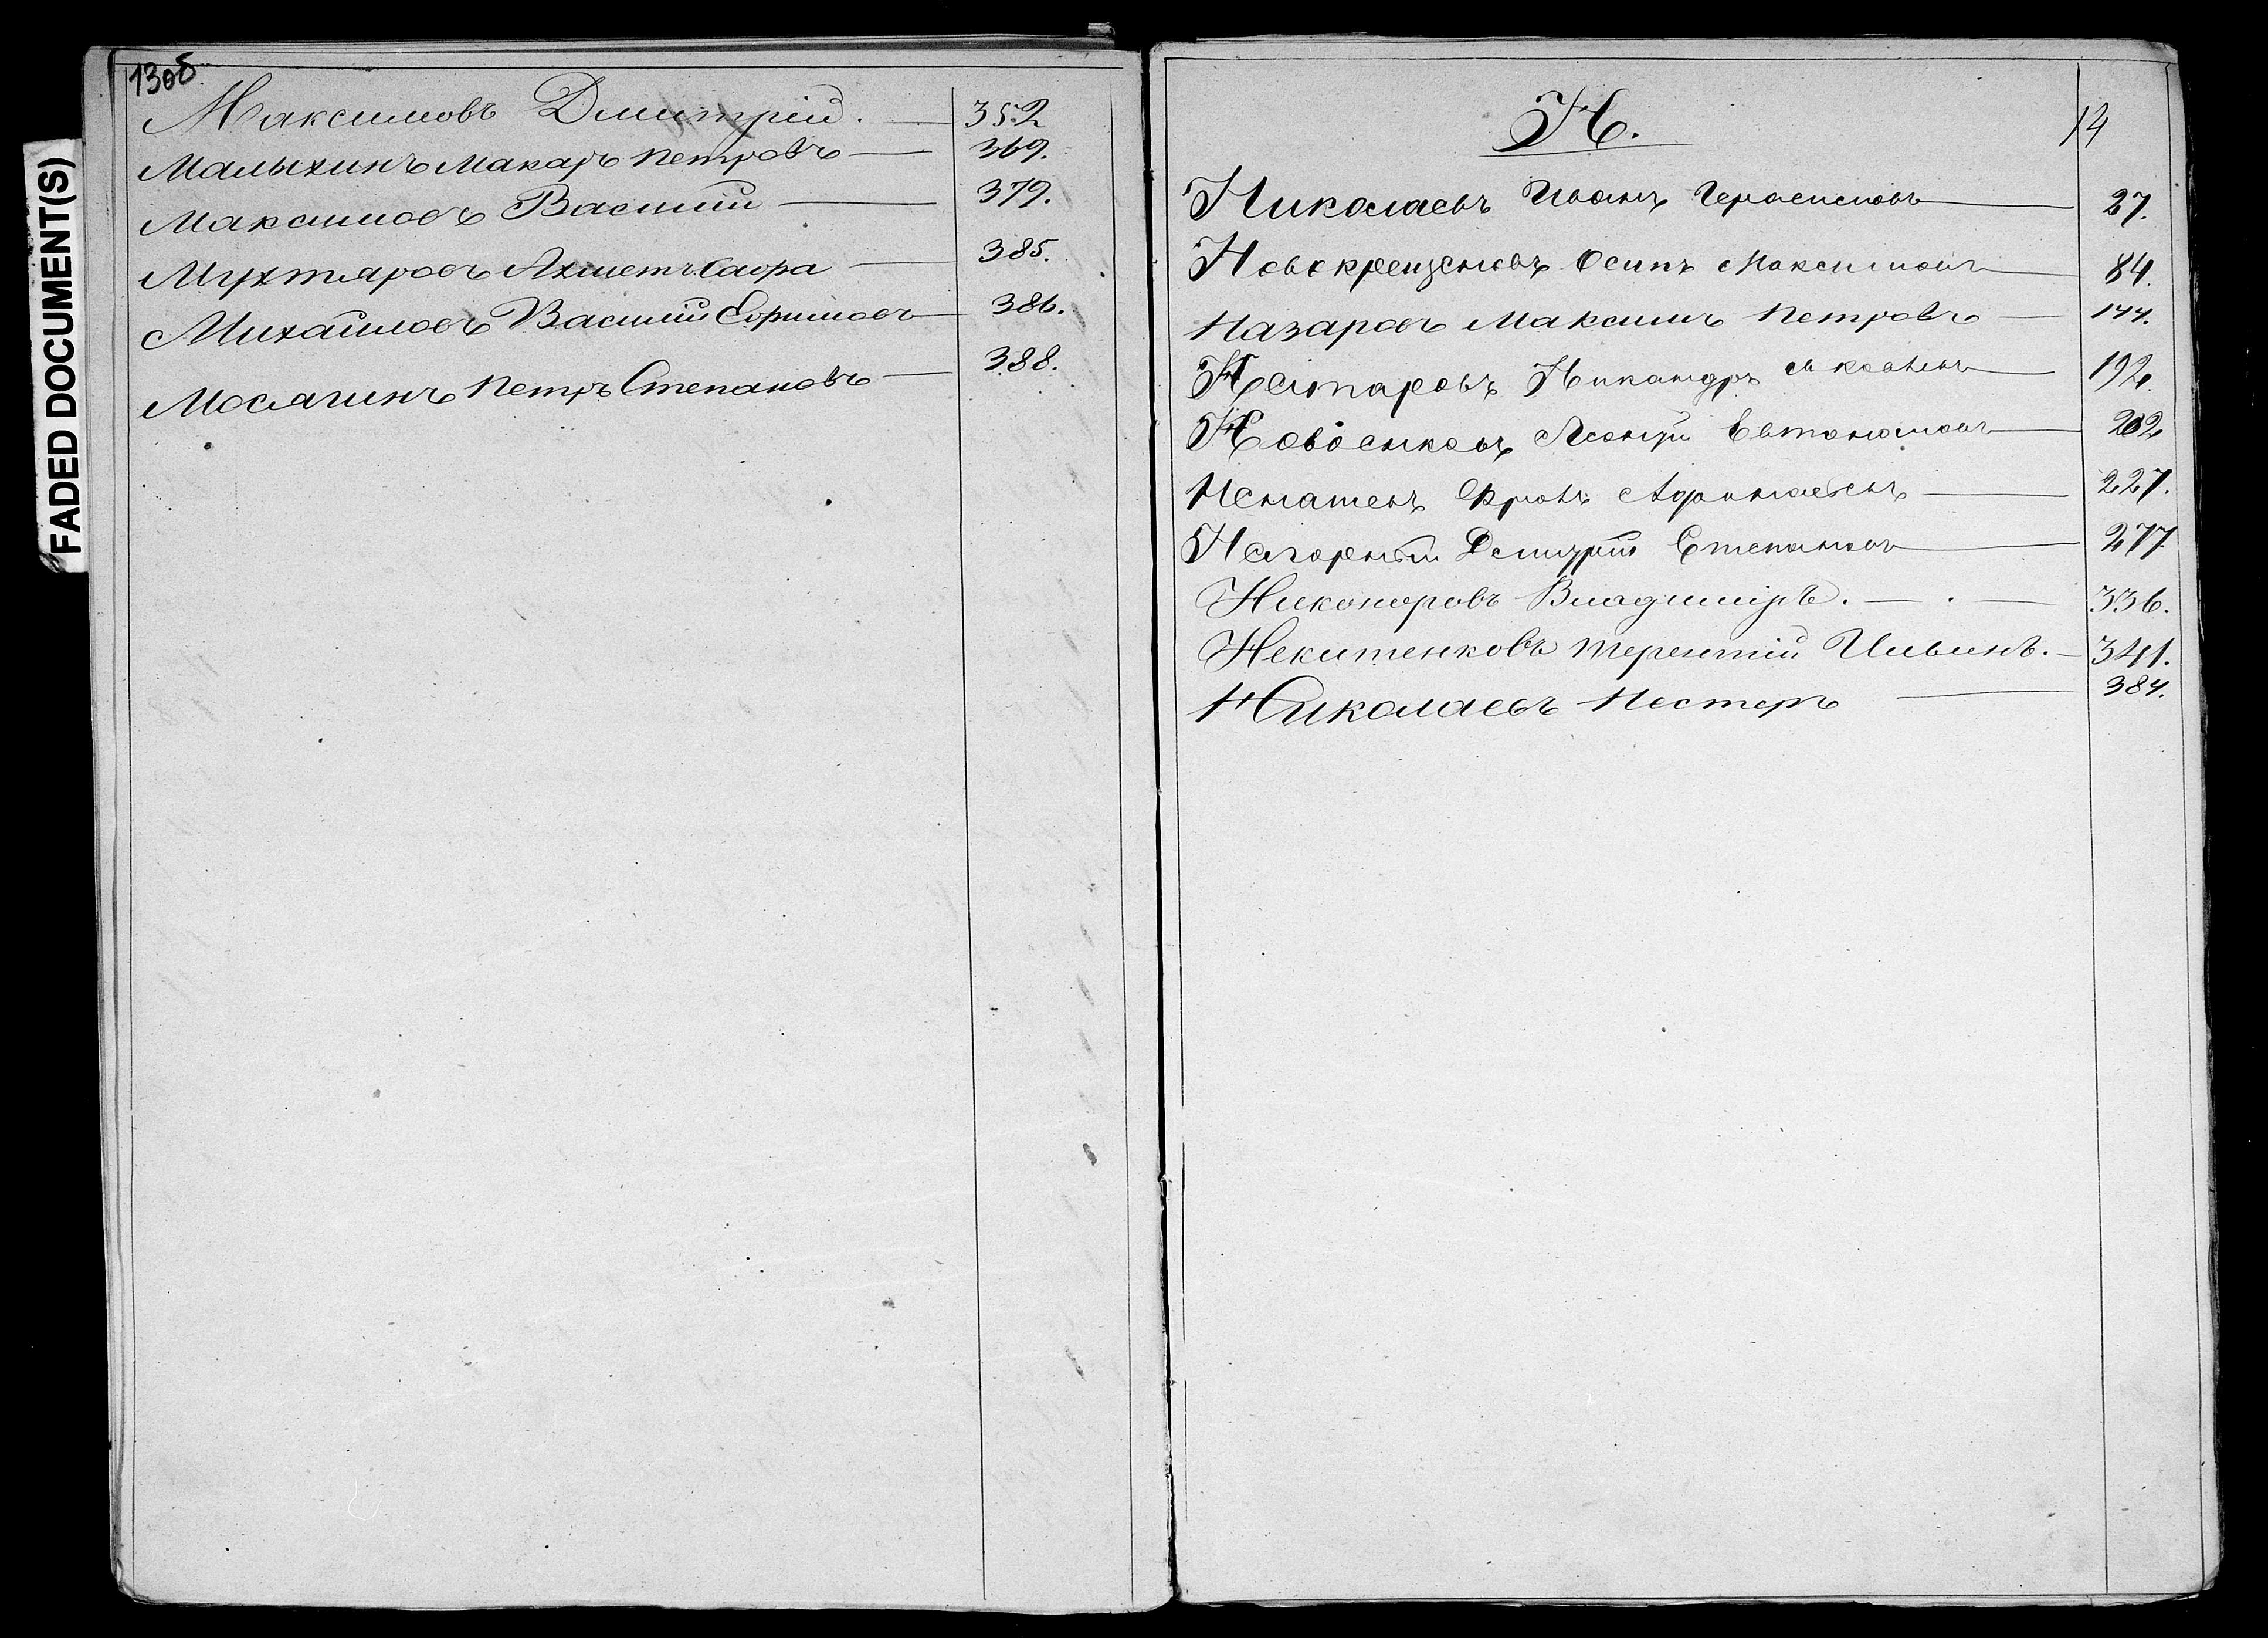 FADED DOCUMENT(S)
13об
Максимовъ Дмитрій. — 352
Малыхинъ Макаръ Петровъ — 369.
Максимовъ Василій — 379.
Мухтяровъ Ахметъ Сафа — 385.
Михайловъ Василій Ефимовъ — 386.
Мосягинъ Петръ Степановъ — 388.
Н.
14
Николаевъ Иванъ Герасимовъ — 27.
Новокрещеновъ Осипъ Максимовъ — 84.
Назаровъ Максимъ Петровъ — 144.
Нестаровъ Никандръ — 192.
Леонтій Евтономовъ — 202
Фролъ — 227.
Нагорный Дмитрій Степановъ — 277
Никоноровъ Владиміръ. — . — 336.
Никитенковъ Терентій Ильинъ. — 341.
Николаевъ Нестеръ — 384.